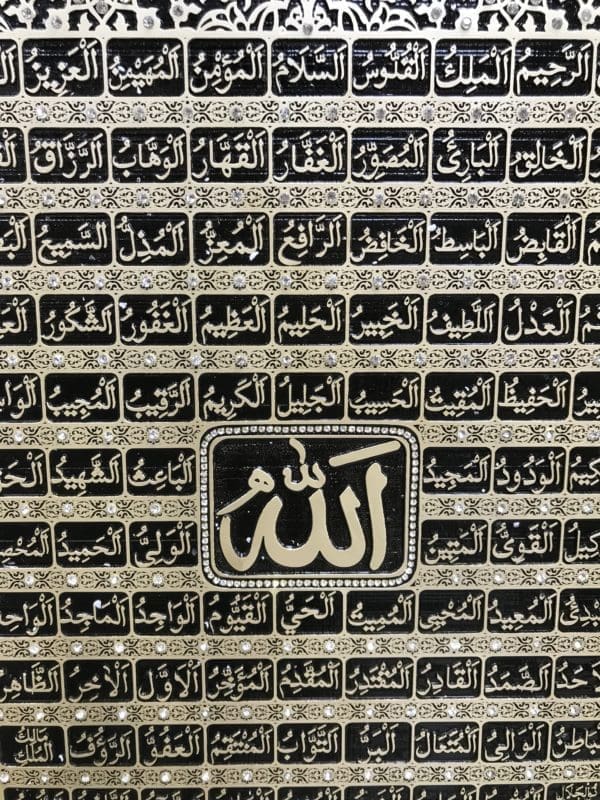 اَلرَّحِيمُ اَلْمَلِكُ اَلْقُدُّوسُ اَلسَّلَامُ اَلْمُؤْمِنُ اَلْمُهَيْمِنُ اَلْعَزِيزُ
اَلْخَالِقُ اَلْبَارِئُ اَلْمُصَوِّرُ اَلْغَفَّارُ اَلْقَهَّارُ اَلْوَهَّابُ اَلرَّزَّاقُ
اَلْقَابِضُ اَلْبَاسِطُ اَلْخَافِضُ اَلرَّافِعُ اَلْمُعِزُّ اَلْمُذِلُّ اَلسَّمِيعُ
اَلْعَدْلُ اَللَّطِيفُ اَلْخَبِيرُ اَلْحَلِيمُ اَلْعَظِيمُ اَلْغَفُورُ اَلشَّكُورُ
اَلْحَفِيظُ اَلْمُقِيتُ اَلْحَسِيبُ اَلْجَلِيلُ اَلْكَرِيمُ اَلرَّقِيبُ اَلْمُجِيبُ
اَلْوَدُودُ اَلْمَجِيدُ اَلْبَاعِثُ اَلشَّهِيدُ
اَللّٰهُ
اَلْقَوِيُّ اَلْمَتِينُ اَلْوَلِيُّ اَلْحَمِيدُ
اَلْمُعِيدُ اَلْمُحْيِي اَلْمُمِيتُ اَلْحَيُّ اَلْقَيُّومُ اَلْوَاجِدُ اَلْمَاجِدُ
اَلصَّمَدُ اَلْقَادِرُ اَلْمُقْتَدِرُ اَلْمُقَدِّمُ اَلْمُؤَخِّرُ اَلْاَوَّلُ اَلْاٰخِرُ اَلظَّاهِرُ
اَلْوَالِي اَلْمُتَعَالُ اَلْبَرُّ اَلتَّوَّابُ اَلْمُنْتَقِمُ اَلْعَفُوُّ اَلرَّؤُفُ مَالِكُ الْمُلْكِ